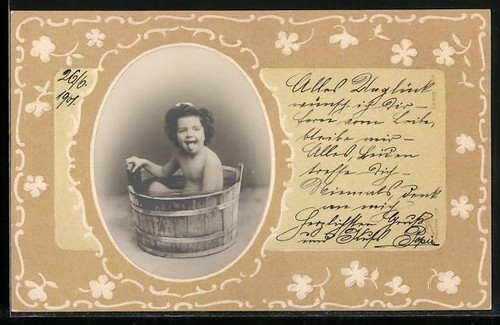 26/6.
1901.
Alles Unglück
wünsch ich Dir –
fern vom Leibe,
bleibe mir –
Alles, Leiden
treffe Dich –
Niemals, denk
an mich
Herzlichsten Gruß
und Kuß